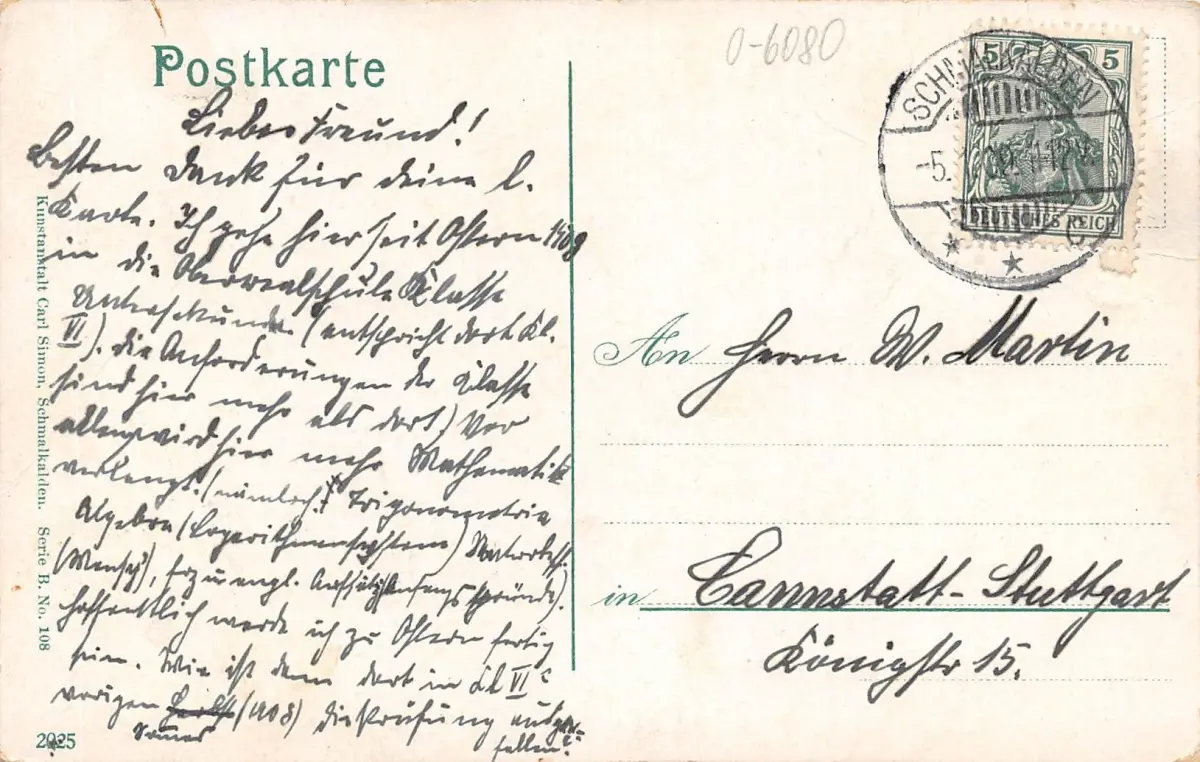 Postkarte
0-6080
5 5
SCHMALKALDEN
-5. 09. 11-12 V.
DEUTSCHES REICH
Lieber Freund!
Besten Dank für deine l.
Karte. Ich gehe hier seit Ostern 1908
in die Oberrealschule Klasse
Untersekunda (entspricht dort Kl.
VI). die Anforderungen der Klasse
sind hier mehr als dort) Vor
allem wird hier mehr Mathematik
verlangt. (nämlich: Trigonometrie
Algebra (Logarithmensystem)
(Mensch), franz. u. engl. Aufsätze, Anfangsgründe).
hoffentlich werde ich zu Ostern fertig
sein. Wie ist denn dort in Kl VI
vorigen Herbst (1908) die Prüfung ausge-
Sommer
fallen?
An Herrn W. Martin
in Cannstatt-Stuttgart
Königstr 15.
Kunstanstalt Carl Simon, Schmalkalden. Serie B. No. 108
2025